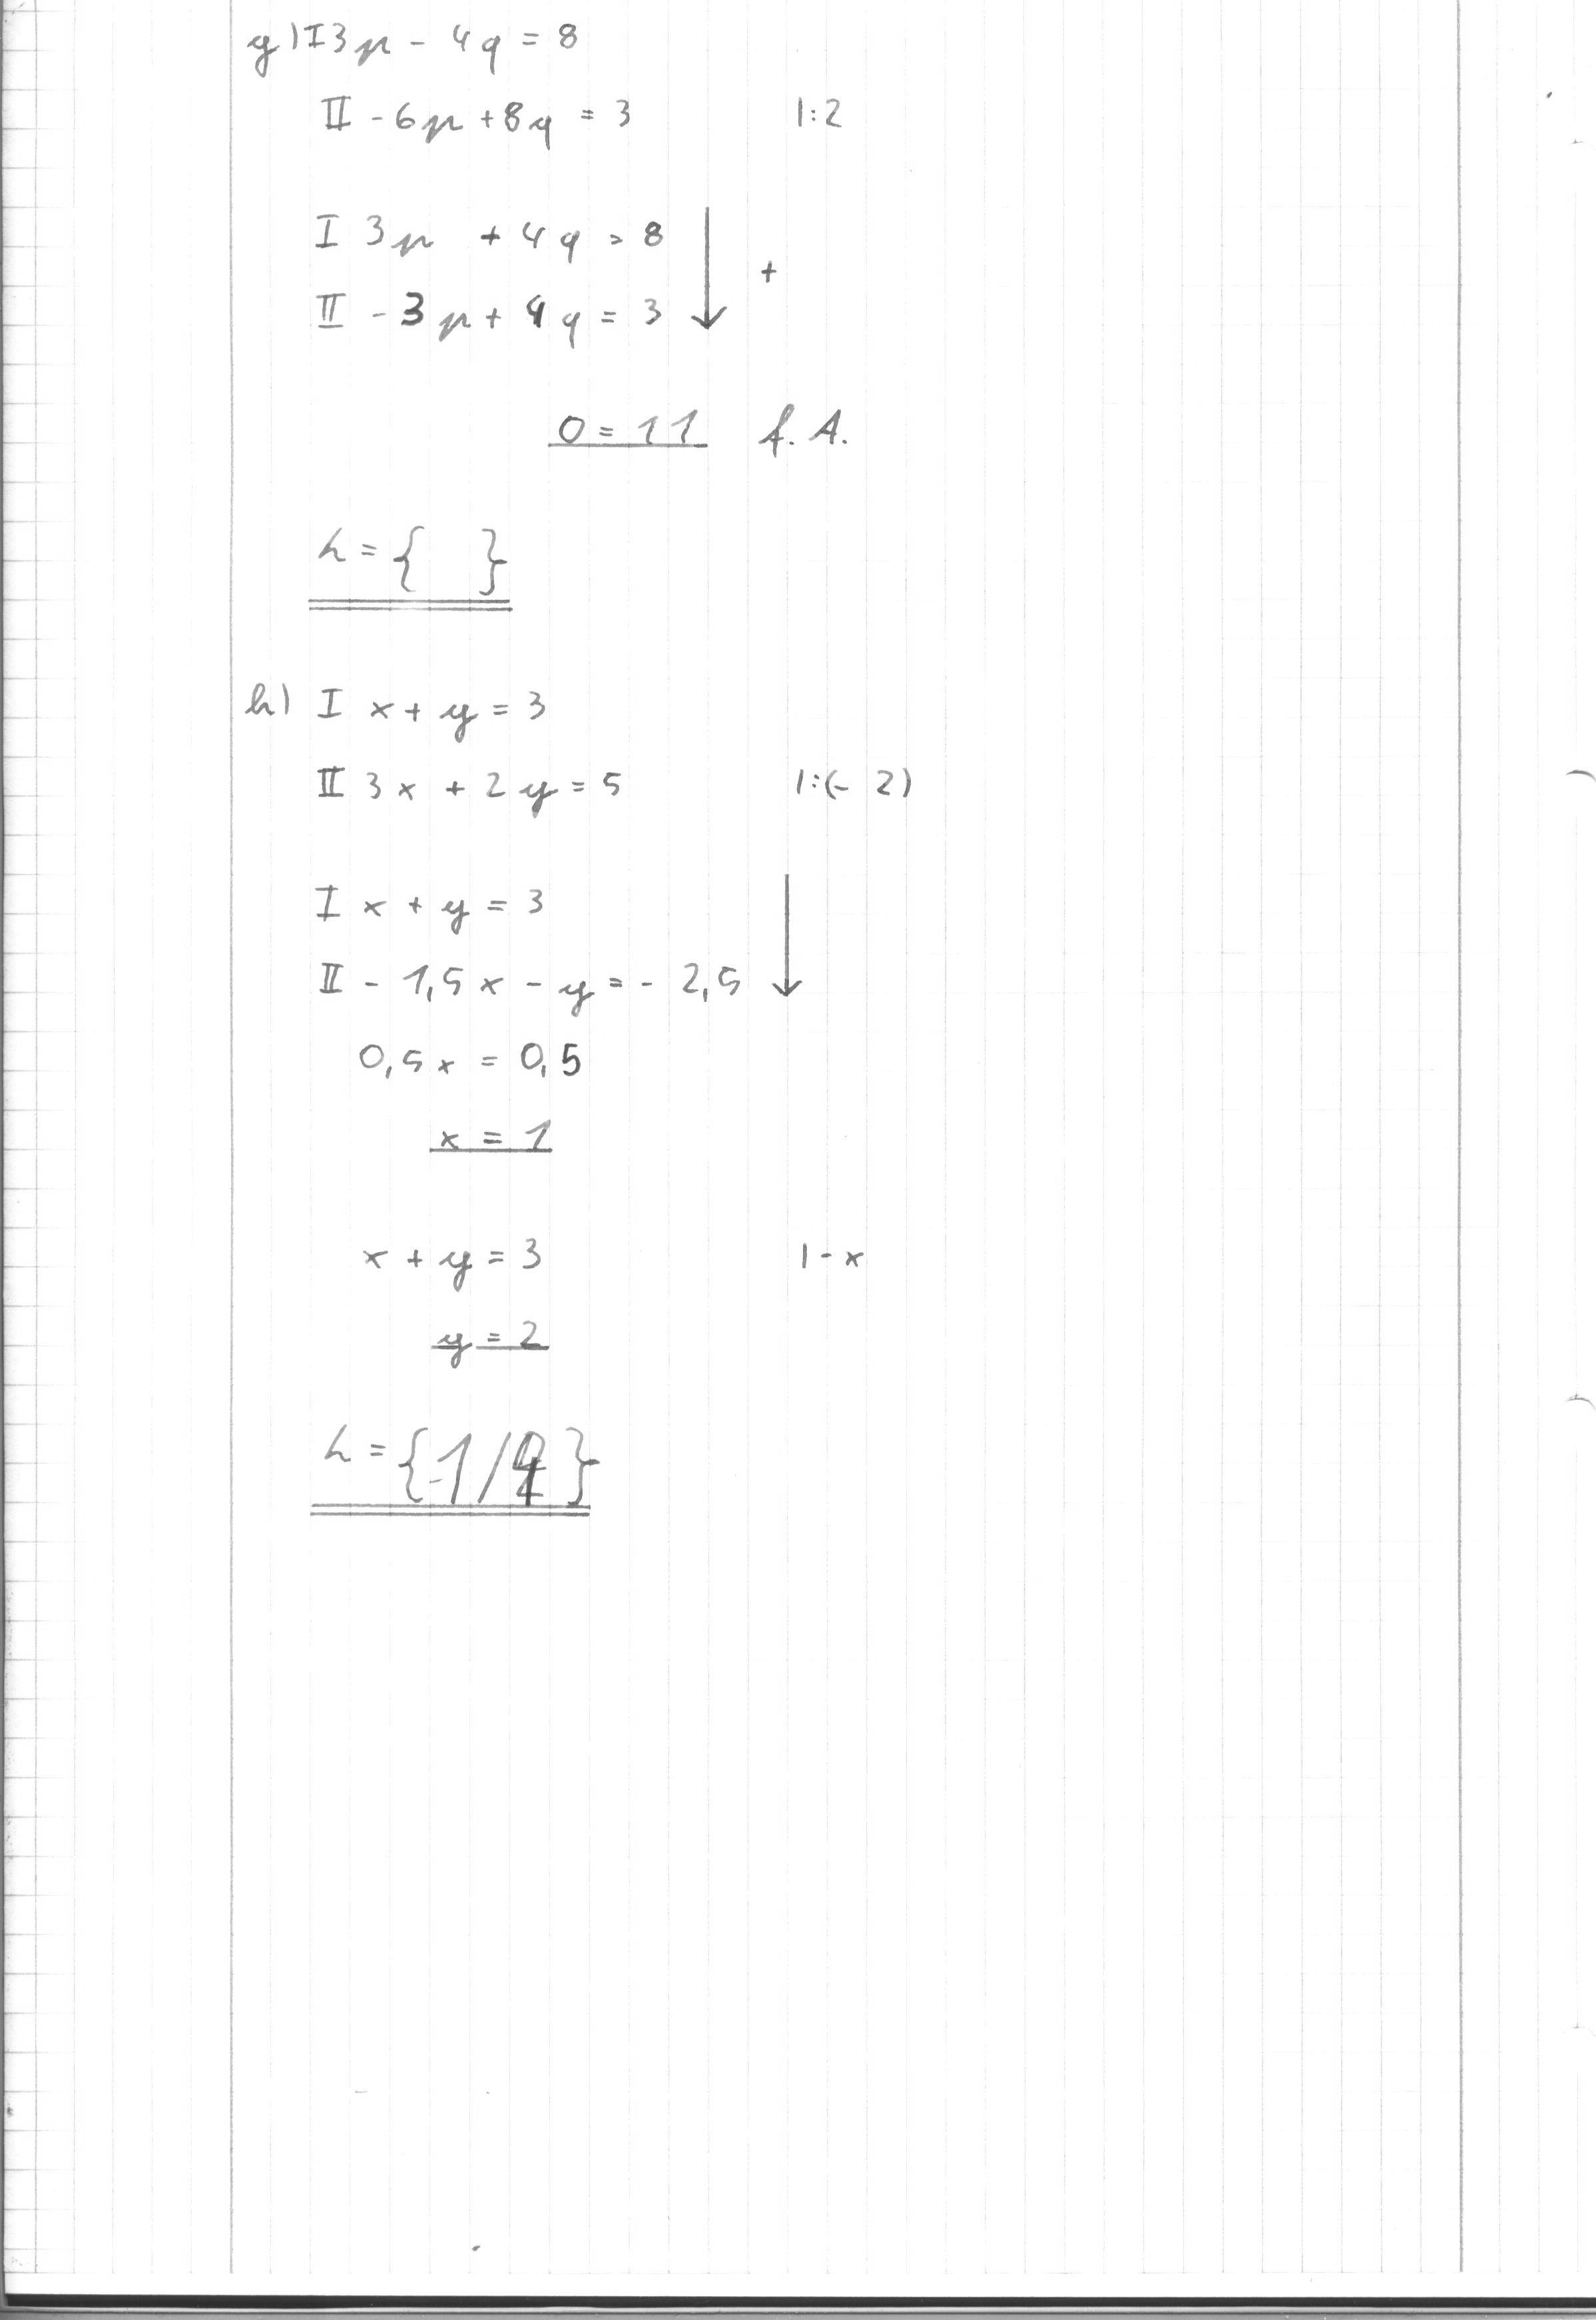 g) I 3p - 4q = 8
II - 6p + 8q = 3 |:2
I 3p + 4q = 8
II - 3p + 4q = 3 +
0 = 11 f. A.
L = { }
h) I x + y = 3
II 3x + 2y = 5 |:(- 2)
I x + y = 3
II - 1,5x - y = - 2,5
0,5x = 0,5
x = 1
x + y = 3 |- x
y = 2
L = {-1/4}